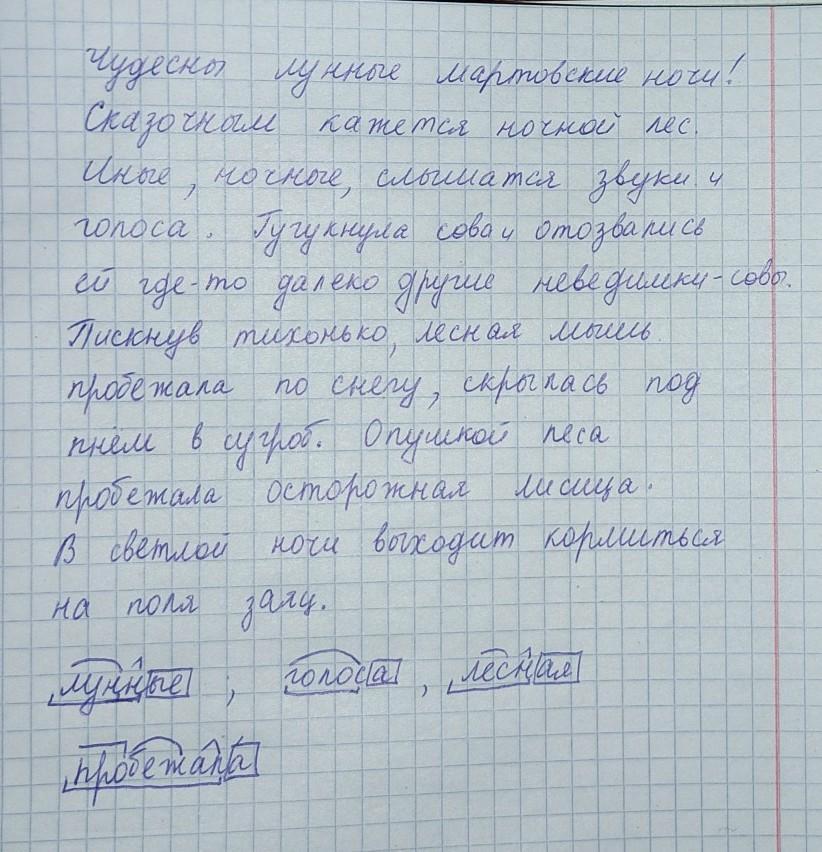 Чудесны лунные мартовские ночи!
Сказочным кажется ночной лес.
Иные, ночные, слышатся звуки и
голоса. Гугукнула сова и отозвались
ей где-то далеко другие неведимки-совы.
Пискнув тихонько, лесная мышь
пробежала по снегу, скрылась под
пнём в сугроб. Опушкой леса
пробежала осторожная лисица.
В светлой ночи выходит кормиться
на поля заяц.
лунные, голоса, лесная
пробежала